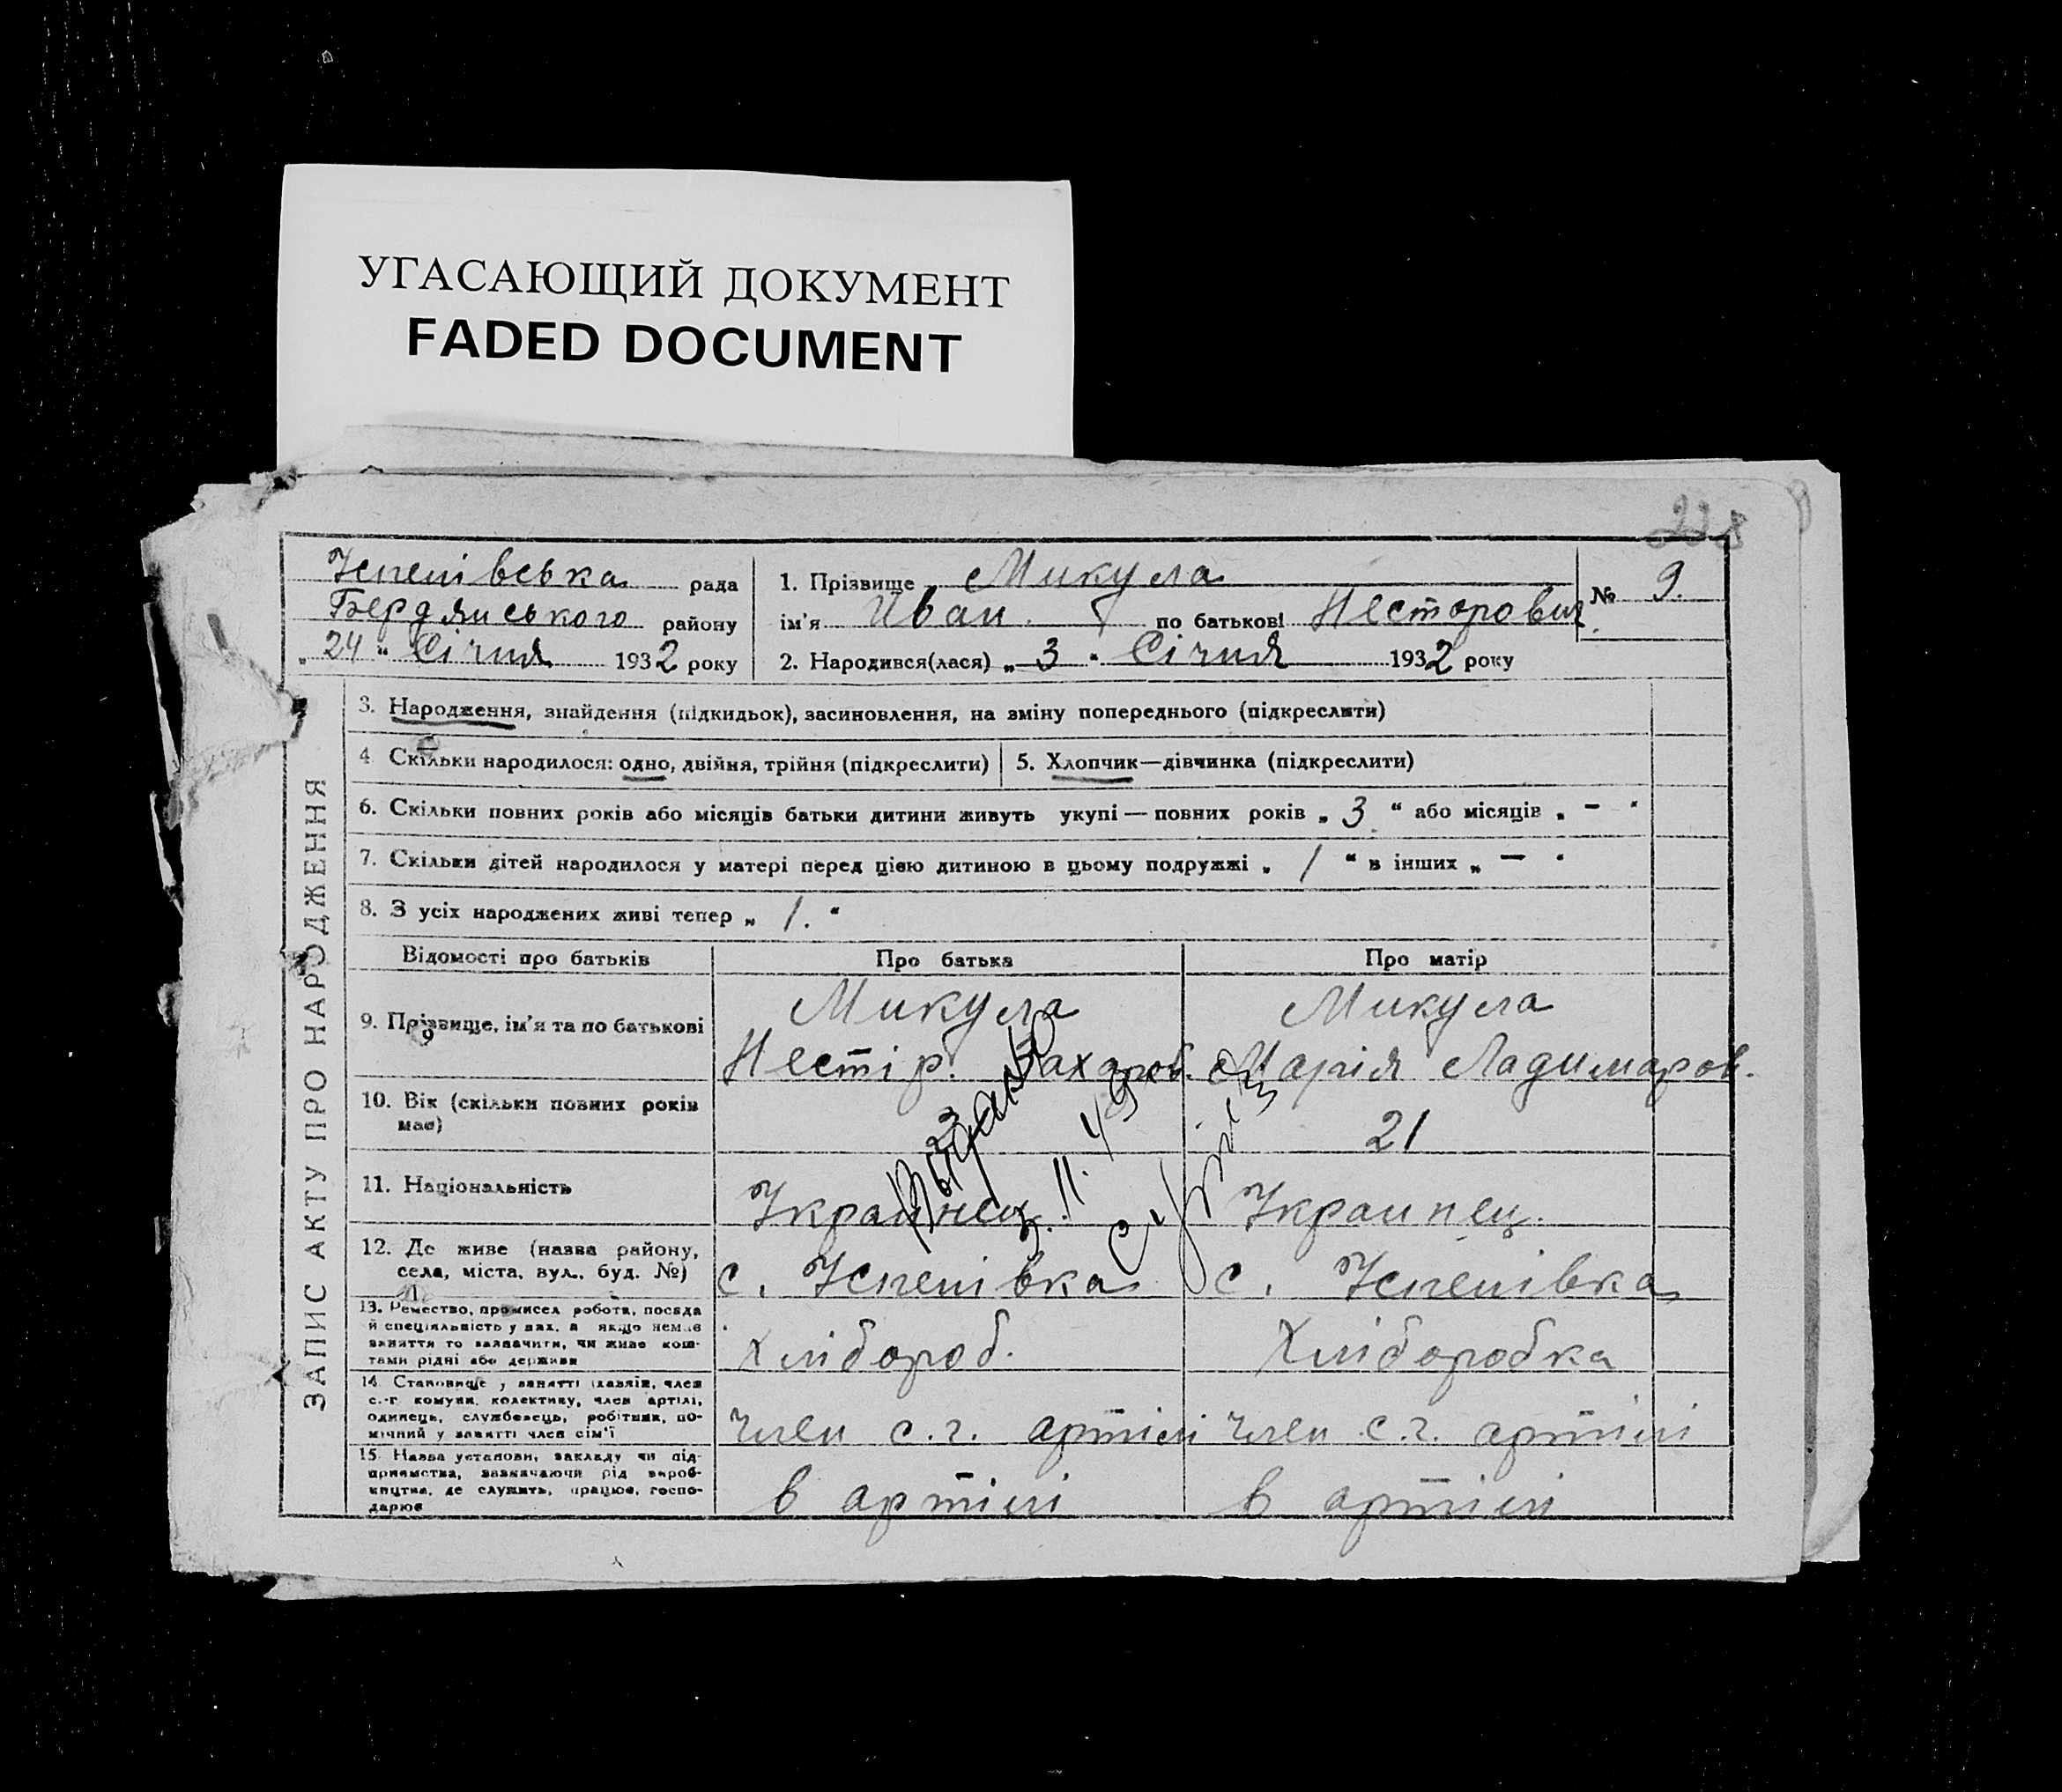 УГАСАЮЩИЙ ДОКУМЕНТ
FADED DOCUMENT
228
Успенівська рада
Бердянського району
„ 24 “ Січня 1932 року
1. Прізвище Микула
ім'я Иван по батькові Несторович
№ 9.
2. Народився(лася) „ 3 “ Січня 1932 року
ЗАПИС АКТУ ПРО НАРОДЖЕННЯ
3. Народження, знайдення (підкидьок), засиновлення, на зміну попереднього (підкреслити)
4 Скільки народилося: одно, двійня, трійня (підкреслити)
5. Хлопчик—дівчинка (підкреслити)
6. Скільки повних років або місяців батьки дитини живуть укупі — повних років „ 3 “ або місяців „ – “
7. Скільки дітей народилося у матері перед цією дитиною в цьому подружжі „ 1 “ в інших „ — “
8. З усіх народжених живі тепер „ 1. “
Відомості про батьків Про батька Про матір
9. Прізвище, ім'я та по батькові
Микула
Нестір. Захаров.
Микула
Марія Ладимаров.
10. Вік (скільки повних років
має)
23
21
11. Національність
Украинец.
Украинец.
12. Де живе (назва району,
села, міста, вул., буд. №)
с. Успенівка
с. Успенівка
13. Ремество, промисел робота, посада
й спеціяльність у них, а якщо немає
заняття то зазначити, чи живе кош-
тами рідні або держави
Хлібороб.
Хліборобка
14. Становище у занятті (хазяїн, член
с.-г комуни, колективу, член артілі,
одинець, службовець, робітник, по-
мічний у занятті член сім'ї
член с.г. артілі
член с.г. артілі
15. Назва установи, закладу чи під-
приємства, зазначаючи рід вироб-
ництва, де служить, працює, госпо-
дарює
в артілі
в артілі
11. 49